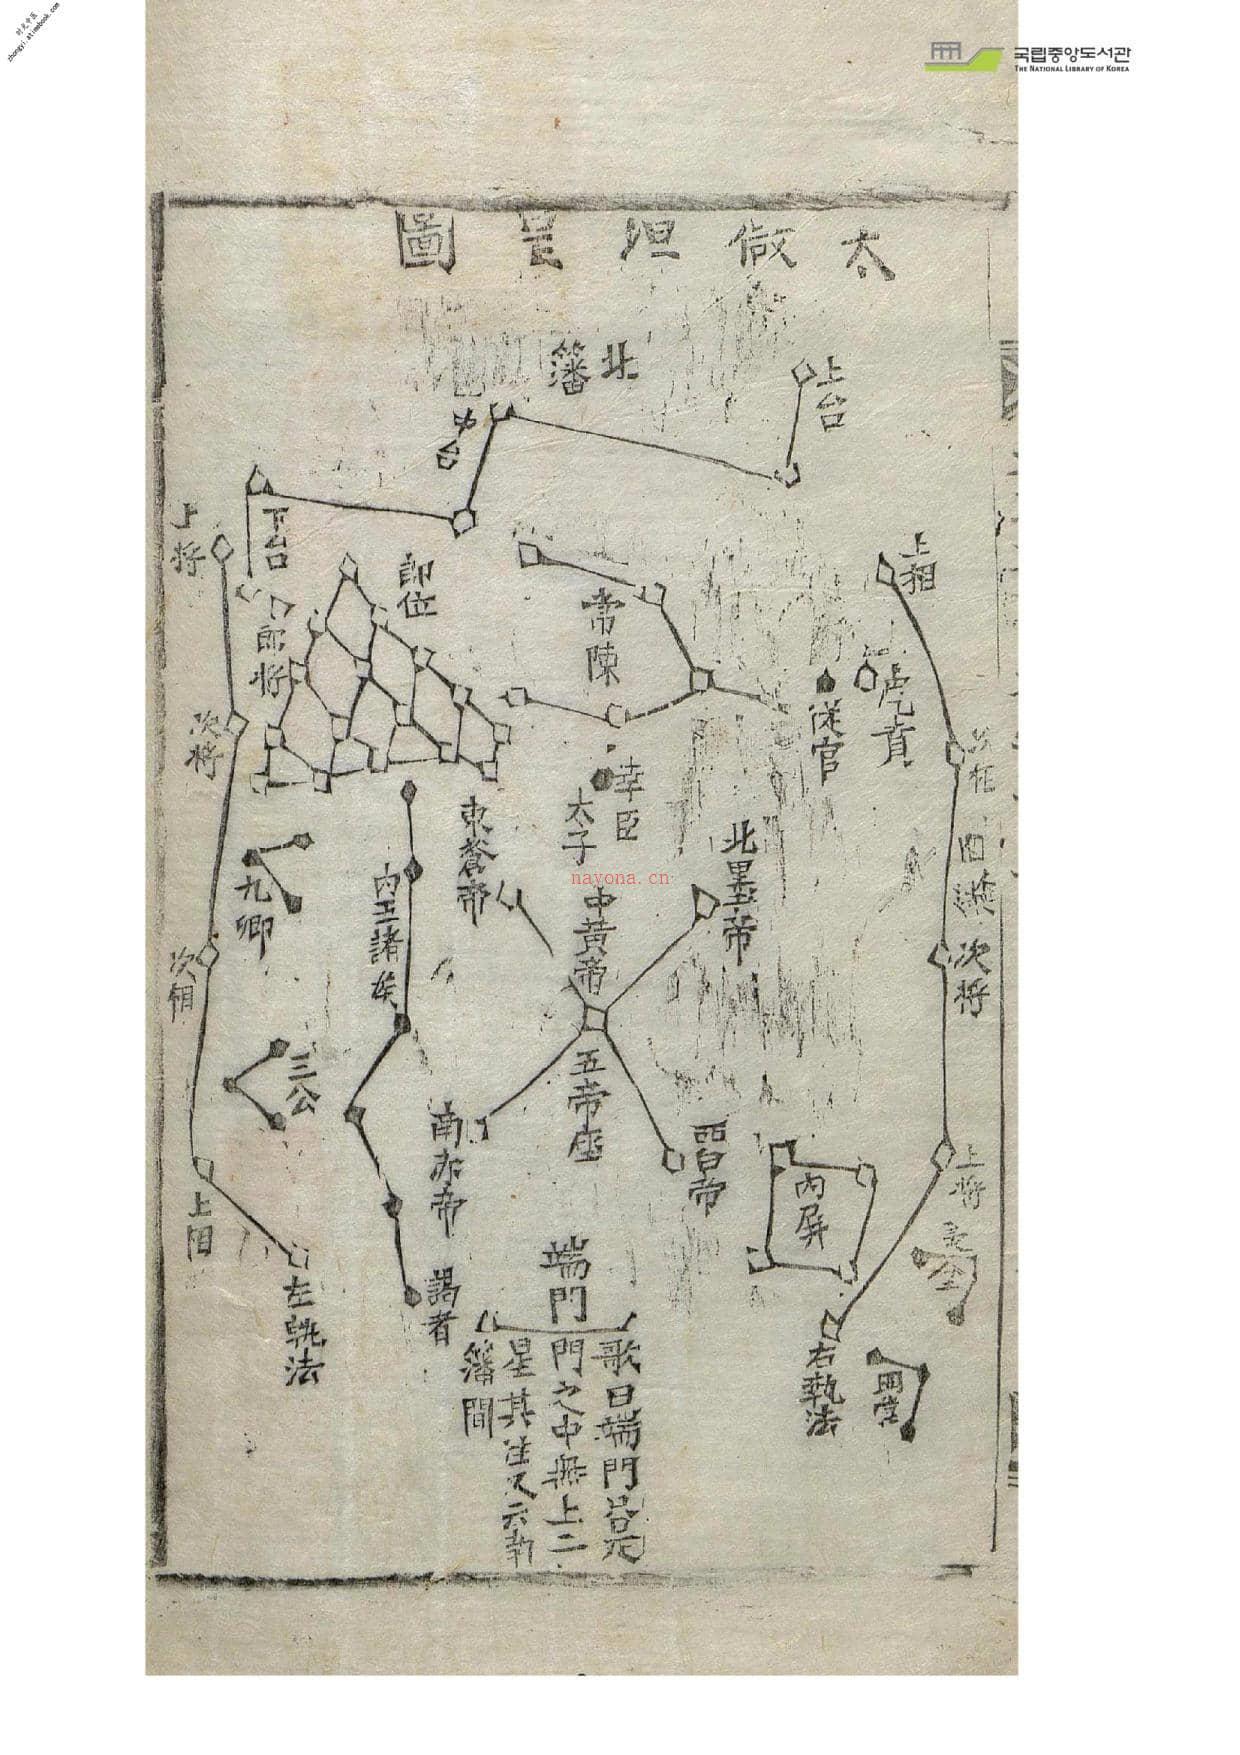 时光中医
zhongyi.atimebook.com
국립중앙도서관
THE NATIONAL LIBRARY OF KOREA
太微垣星圖
北
籓
上台
中台
下台
上相
虎賁
從官
常陳
郎位
郎将
上将
次将
次相
次将
幸臣
太子
北黑帝
中黄帝
東蒼帝
内五諸侯
九卿
次相
五帝座
三公
南赤帝
西白帝
内屏
上将
上相
端門
謁者
左執法
右執法
歌曰端門
門之中無上二
星其注又云
籓間
nayona.cn